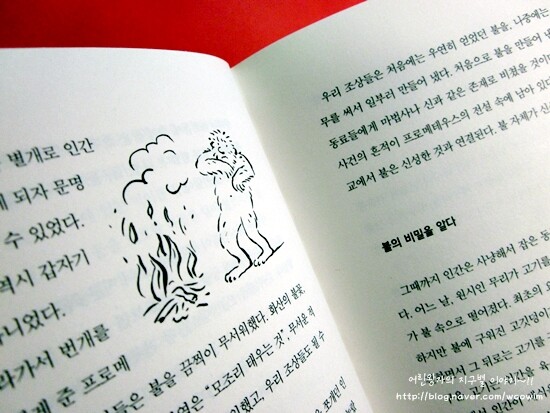 벌개로 인간
되자 문명
수 있었다.
역시 갑자기
니었다.
라가서 번개를
준 프로메
불을 끔찍이 무서워했다. 화산의 불꽃,
은 "모조리 태우는 것", 무서운 적
했고, 우리 조상들도 될 수
우리 조상들은 처음에는 우연히 얻었던 불을, 나중에는
무를 써서 일부러 만들어 냈다. 처음으로 불을 만들어 낸
동료들에게 마법사나 신과 같은 존재로 비쳤을 것이
사건의 흔적이 프로메테우스의 전설 속에 남아 있
교에서 불은 신성한 것과 연결된다. 불 자체가 신
불의 비밀을 알다
그때까지 인간은 사냥해서 잡은 동
다. 어느 날, 원시인 무리가 고기를
가 불 속으로 떨어졌다. 최초의 요
하지만 불에 구워진 고깃덩이
면서 그 뒤로는 고기를
어린왕자의 지구별 이야기~!!
http://blog.naver.com/wcowin